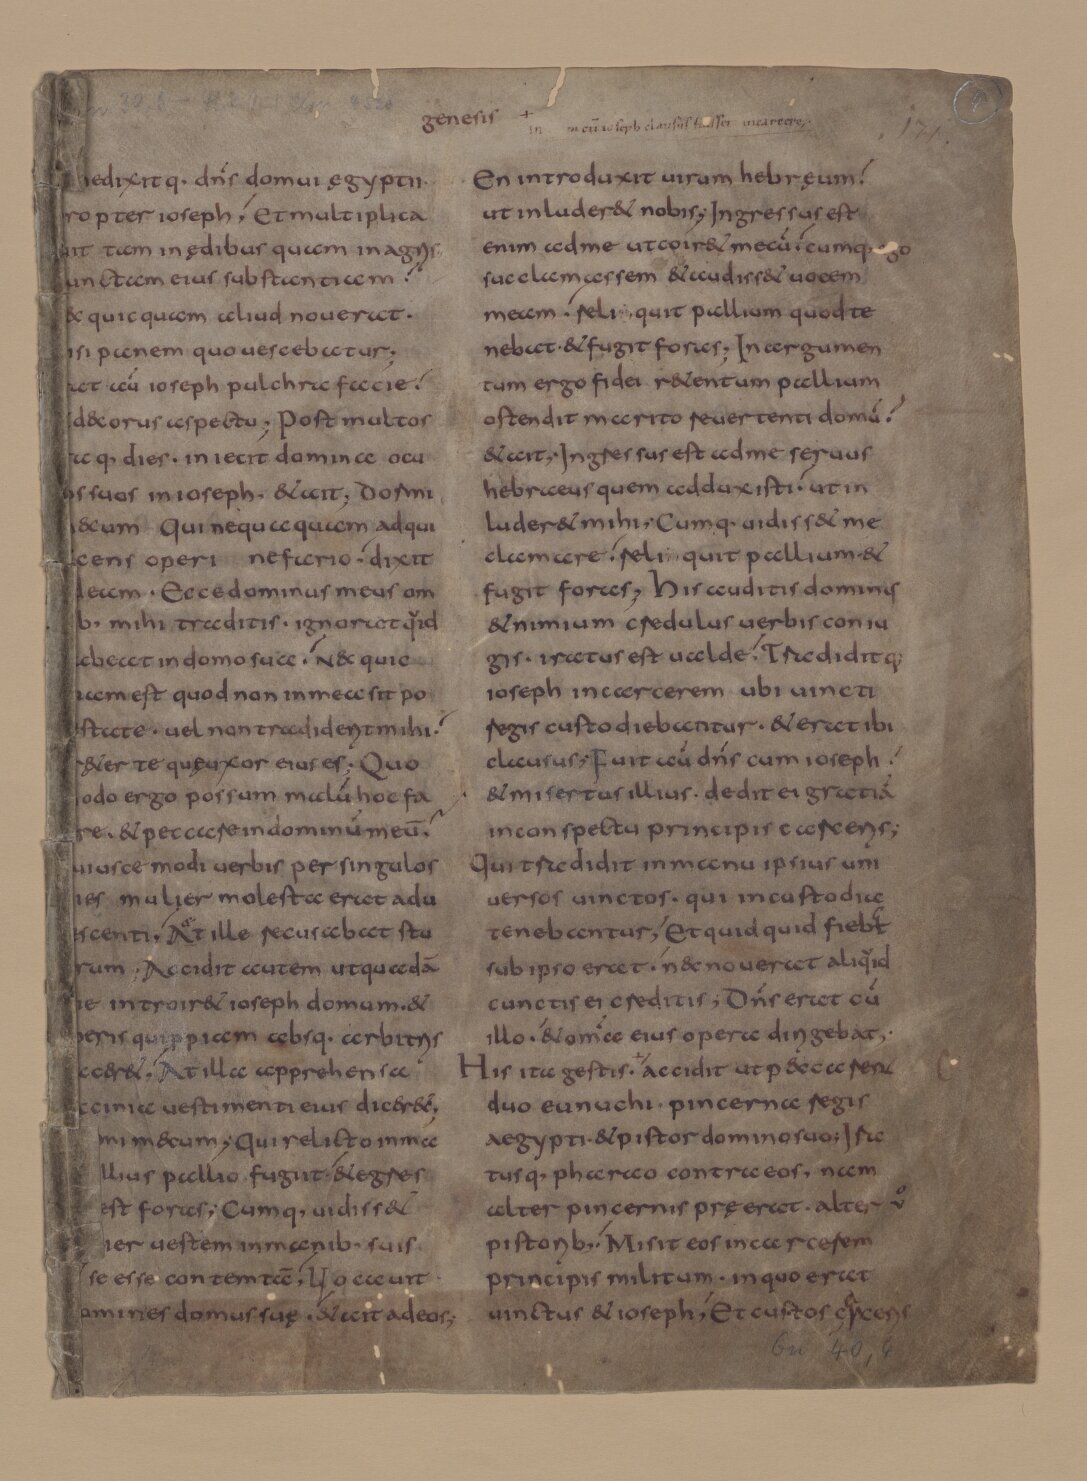 genesis
cu ioseph clausus fuisset in carcere
edixitq. dn̄s domui ęgyptii.
ropter ioseph; Et multiplica
uit tam in ędibus quam in agris
unctam eius substantiam;
& quicquam aliud nouerat.
isi panem quo uescebatur;
rat aū ioseph pulchra facie;
d&corus aspectu; Post multos
taq, dies. in iecit domina ocu
os suos in ioseph. & ait; Dormi
m&cum Qui nequaquam adqui
cens operi nefario. dixit
deam. Ecce dominus meus om
b. mihi traditis. ignorat quid
abeat in domo sua; N&c quic
uam est quod non in mea sit po
state. uel non tradident mihi.
r&er te quę uxor eius es; Quo
odo ergo possum malū hoc fa
re. & peccare in dominū meū.
uiusce modi uerbis per singulos
ies mulier molesta erat adu
scenti; At ille recusabat stu
rum; Accidit autem ut quadā
ie introir& ioseph domum. &
peris quippiam absq. arbitris
acer&; At illa apprehensa
acinia uestimenti eius dicer&;
mi m&cum; Qui relicto in ma
llius pallio fugiit. & egres
est foras; Cumq, uidiss&
ier uestem in manib. suis
se esse contemtā; Uocauit
omines domus suę. & ait ad eos;
En introduxit uirum hebręum;
ut inluder& nobis; Ingressus est
enim ad me ut coir& mecū. cumq. ego
succlamassem & audiss& uocem
meam. reli quit pallium quod te
nebat. & fugit foras; In argumen
tum ergo fidei r&entum pallium
ostendit marito reuertenti domū;
& ait; Ingressus est ad me seruus
hebraeus quem adduxisti. ut in
luder& mihi; Cumq. uidiss& me
clamare. reli quit pallium. &
fugit foras; His auditis dominus
& nimium credulus uerbis coniu
gis. iratus est ualde; Tradiditq;
ioseph in carcerem ubi uincti
regis custodiebantur. & erat ibi
clausus; Fuit aū dn̄s cum ioseph;
& misertus illius. dedit ei gratiā
in conspectu principis carceris;
Qui tradidit in manu ipsius uni
uersos uinctos. qui in custodia
tenebantur; Et quid quid fiebat
sub ipso erat. n&c nouerat aliquid
cunctis ei creditis; Dn̄s erat cū
illo. & omīa eius opera dirigebat;
His ita gestis. accidit ut p&ccarent
duo eunuchi. pincerna regis
aegypti. & pistor domino suo; Ira
tusq, pharao contra eos, nam
alter pincernis pręerat. alter ů
pistorib; Misit eos in carcerem
principis militum. in quo erat
uinctus & ioseph; Et custos carceris
Gn 40,4